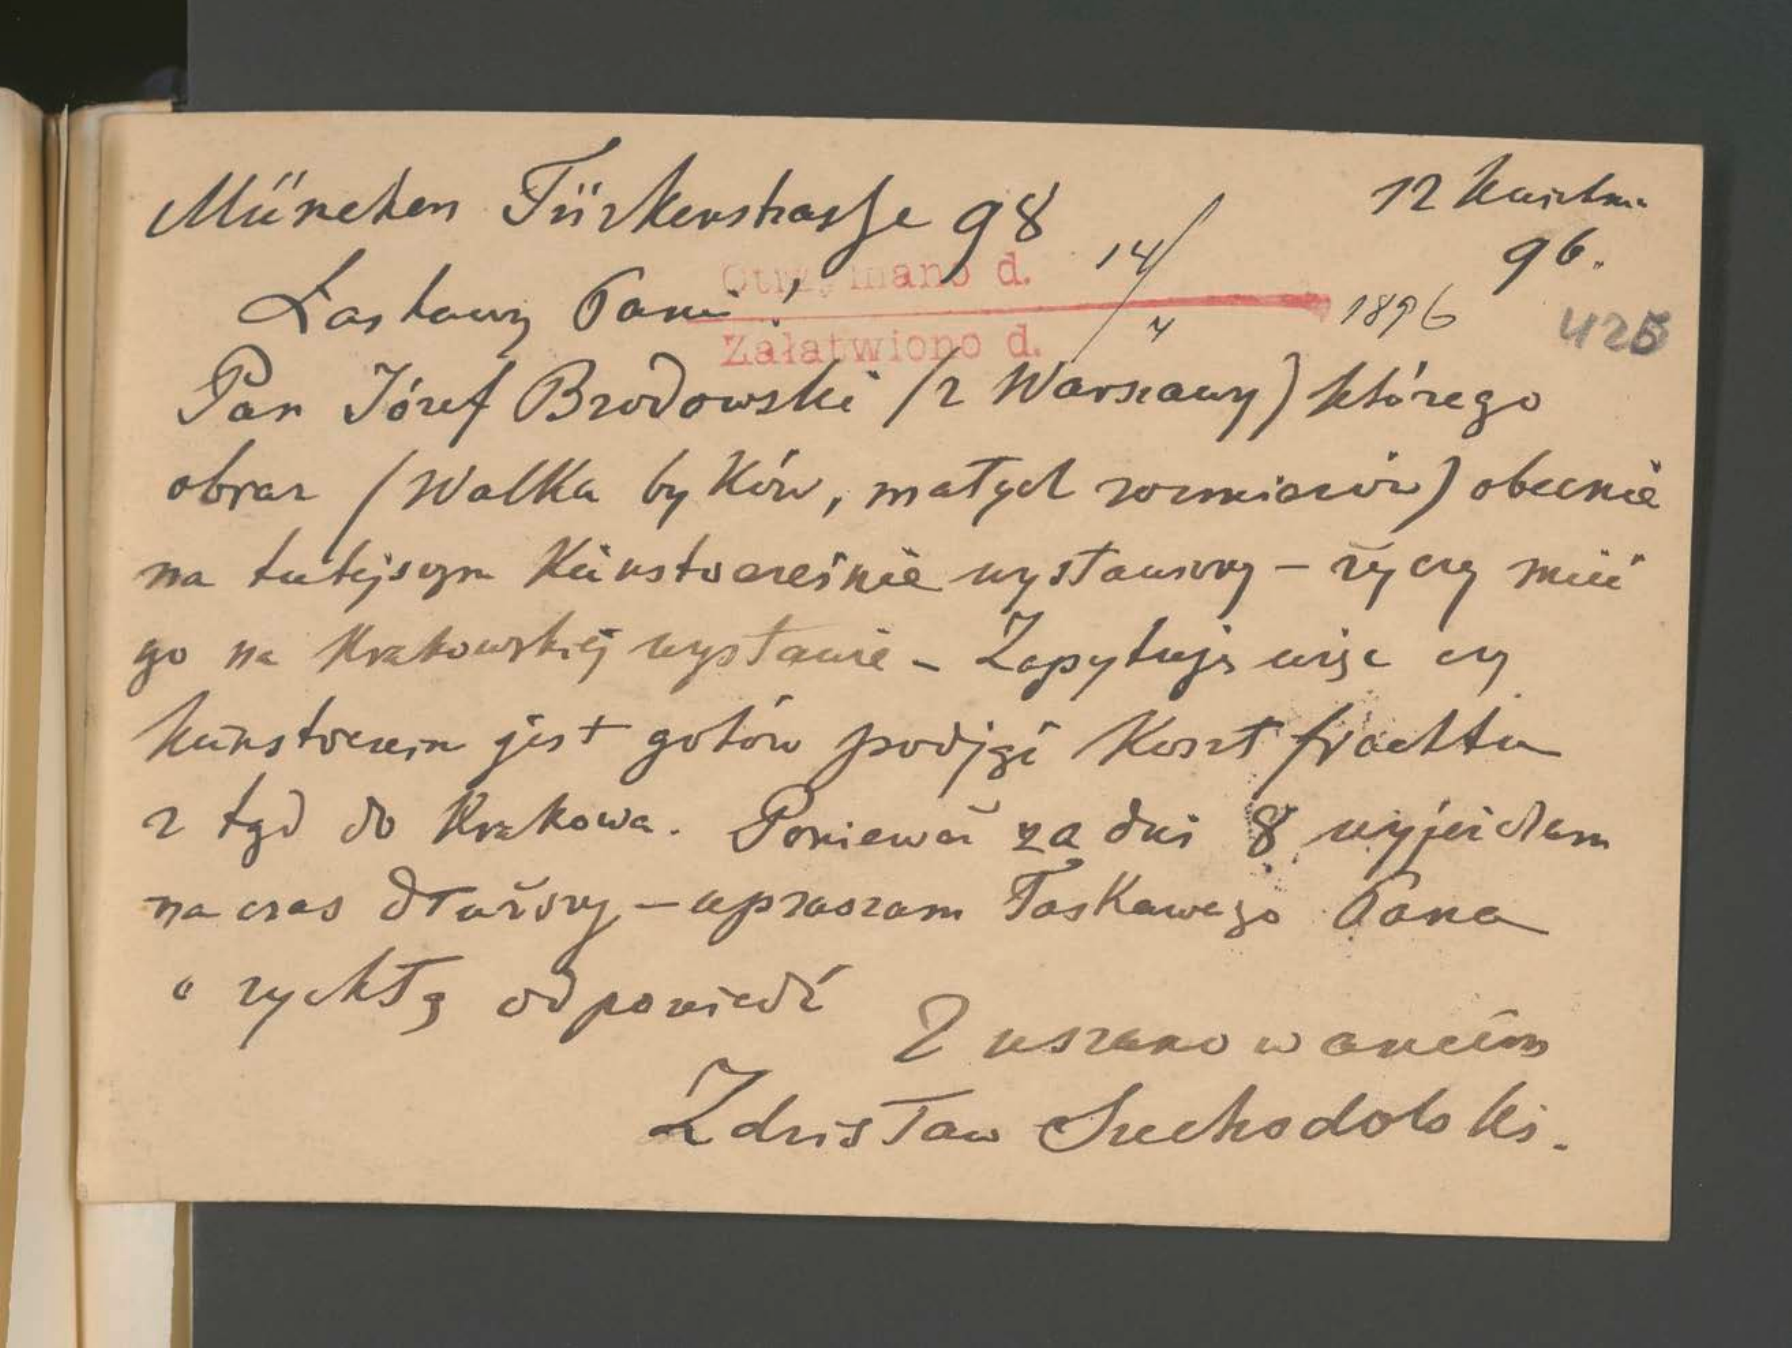 München Türkenstrasse 98
12 kwietnia
96.
Otrzymano d. 14/4 1896
Załatwiono d.
425
Łaskawy Panie!
Pan Józef Brodowski (z Warszawy) którego
obraz (Walka byków, małych rozmiarów) obecnie
na tutejszym Künstvereinie wystawiony – życzy mieć
go na Krakowskiej wystawie – Zapytuję więc czy
Künstverein jest gotów podjąć koszt frachtu
z tąd do Krakowa. Ponieważ za dni 8 wyjeżdżam
na czas dłuższy – upraszam Łaskawego Pana
o rychłą odpowiedź
Z uszanowaniem
Zdzisław Suchodolski.